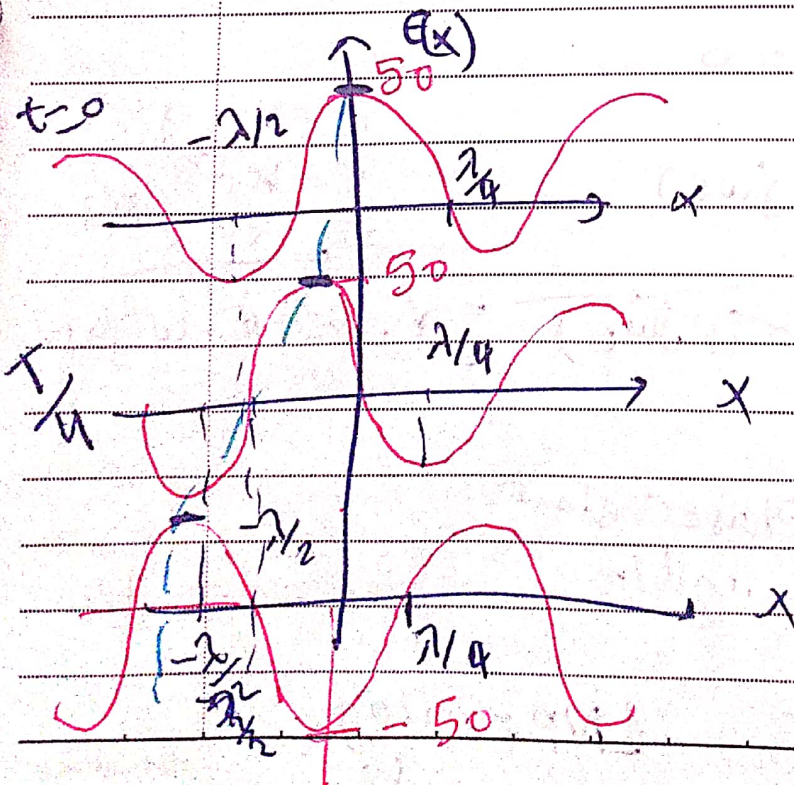 E(x)
50
t=0
-λ/2
λ/4
x
50
λ/4
T/4
x
-λ/2
x
-λ/2
λ/4
-λ/2
-50